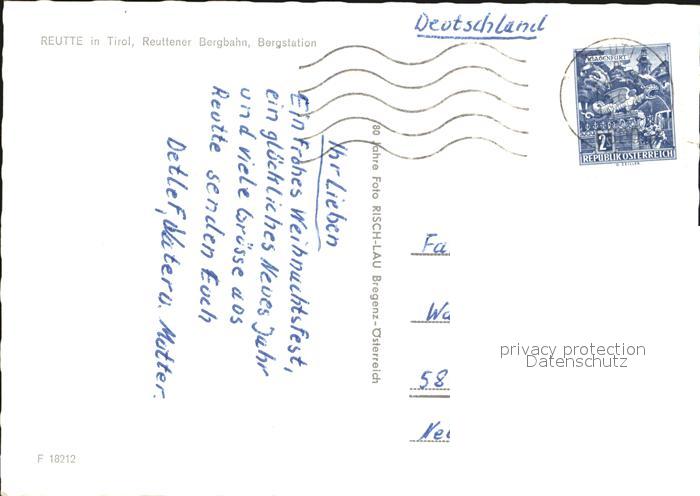 Deutschland
REUTTE in Tirol, Reuttener Bergbahn, Bergstation
KLAGENFURT
2S
REPUBLIK ÖSTERREICH
Ihr Lieben
Ein frohes Weihnachtsfest,
ein glückliches Neues Jahr
und viele Grüsse aus
Reutte senden Euch
Detlef, Vater u. Mutter.
80 Jahre Foto RISCH-LAU Bregenz-Österreich
Fa
Wa
58
Ne
privacy protection
Datenschutz
F 18212